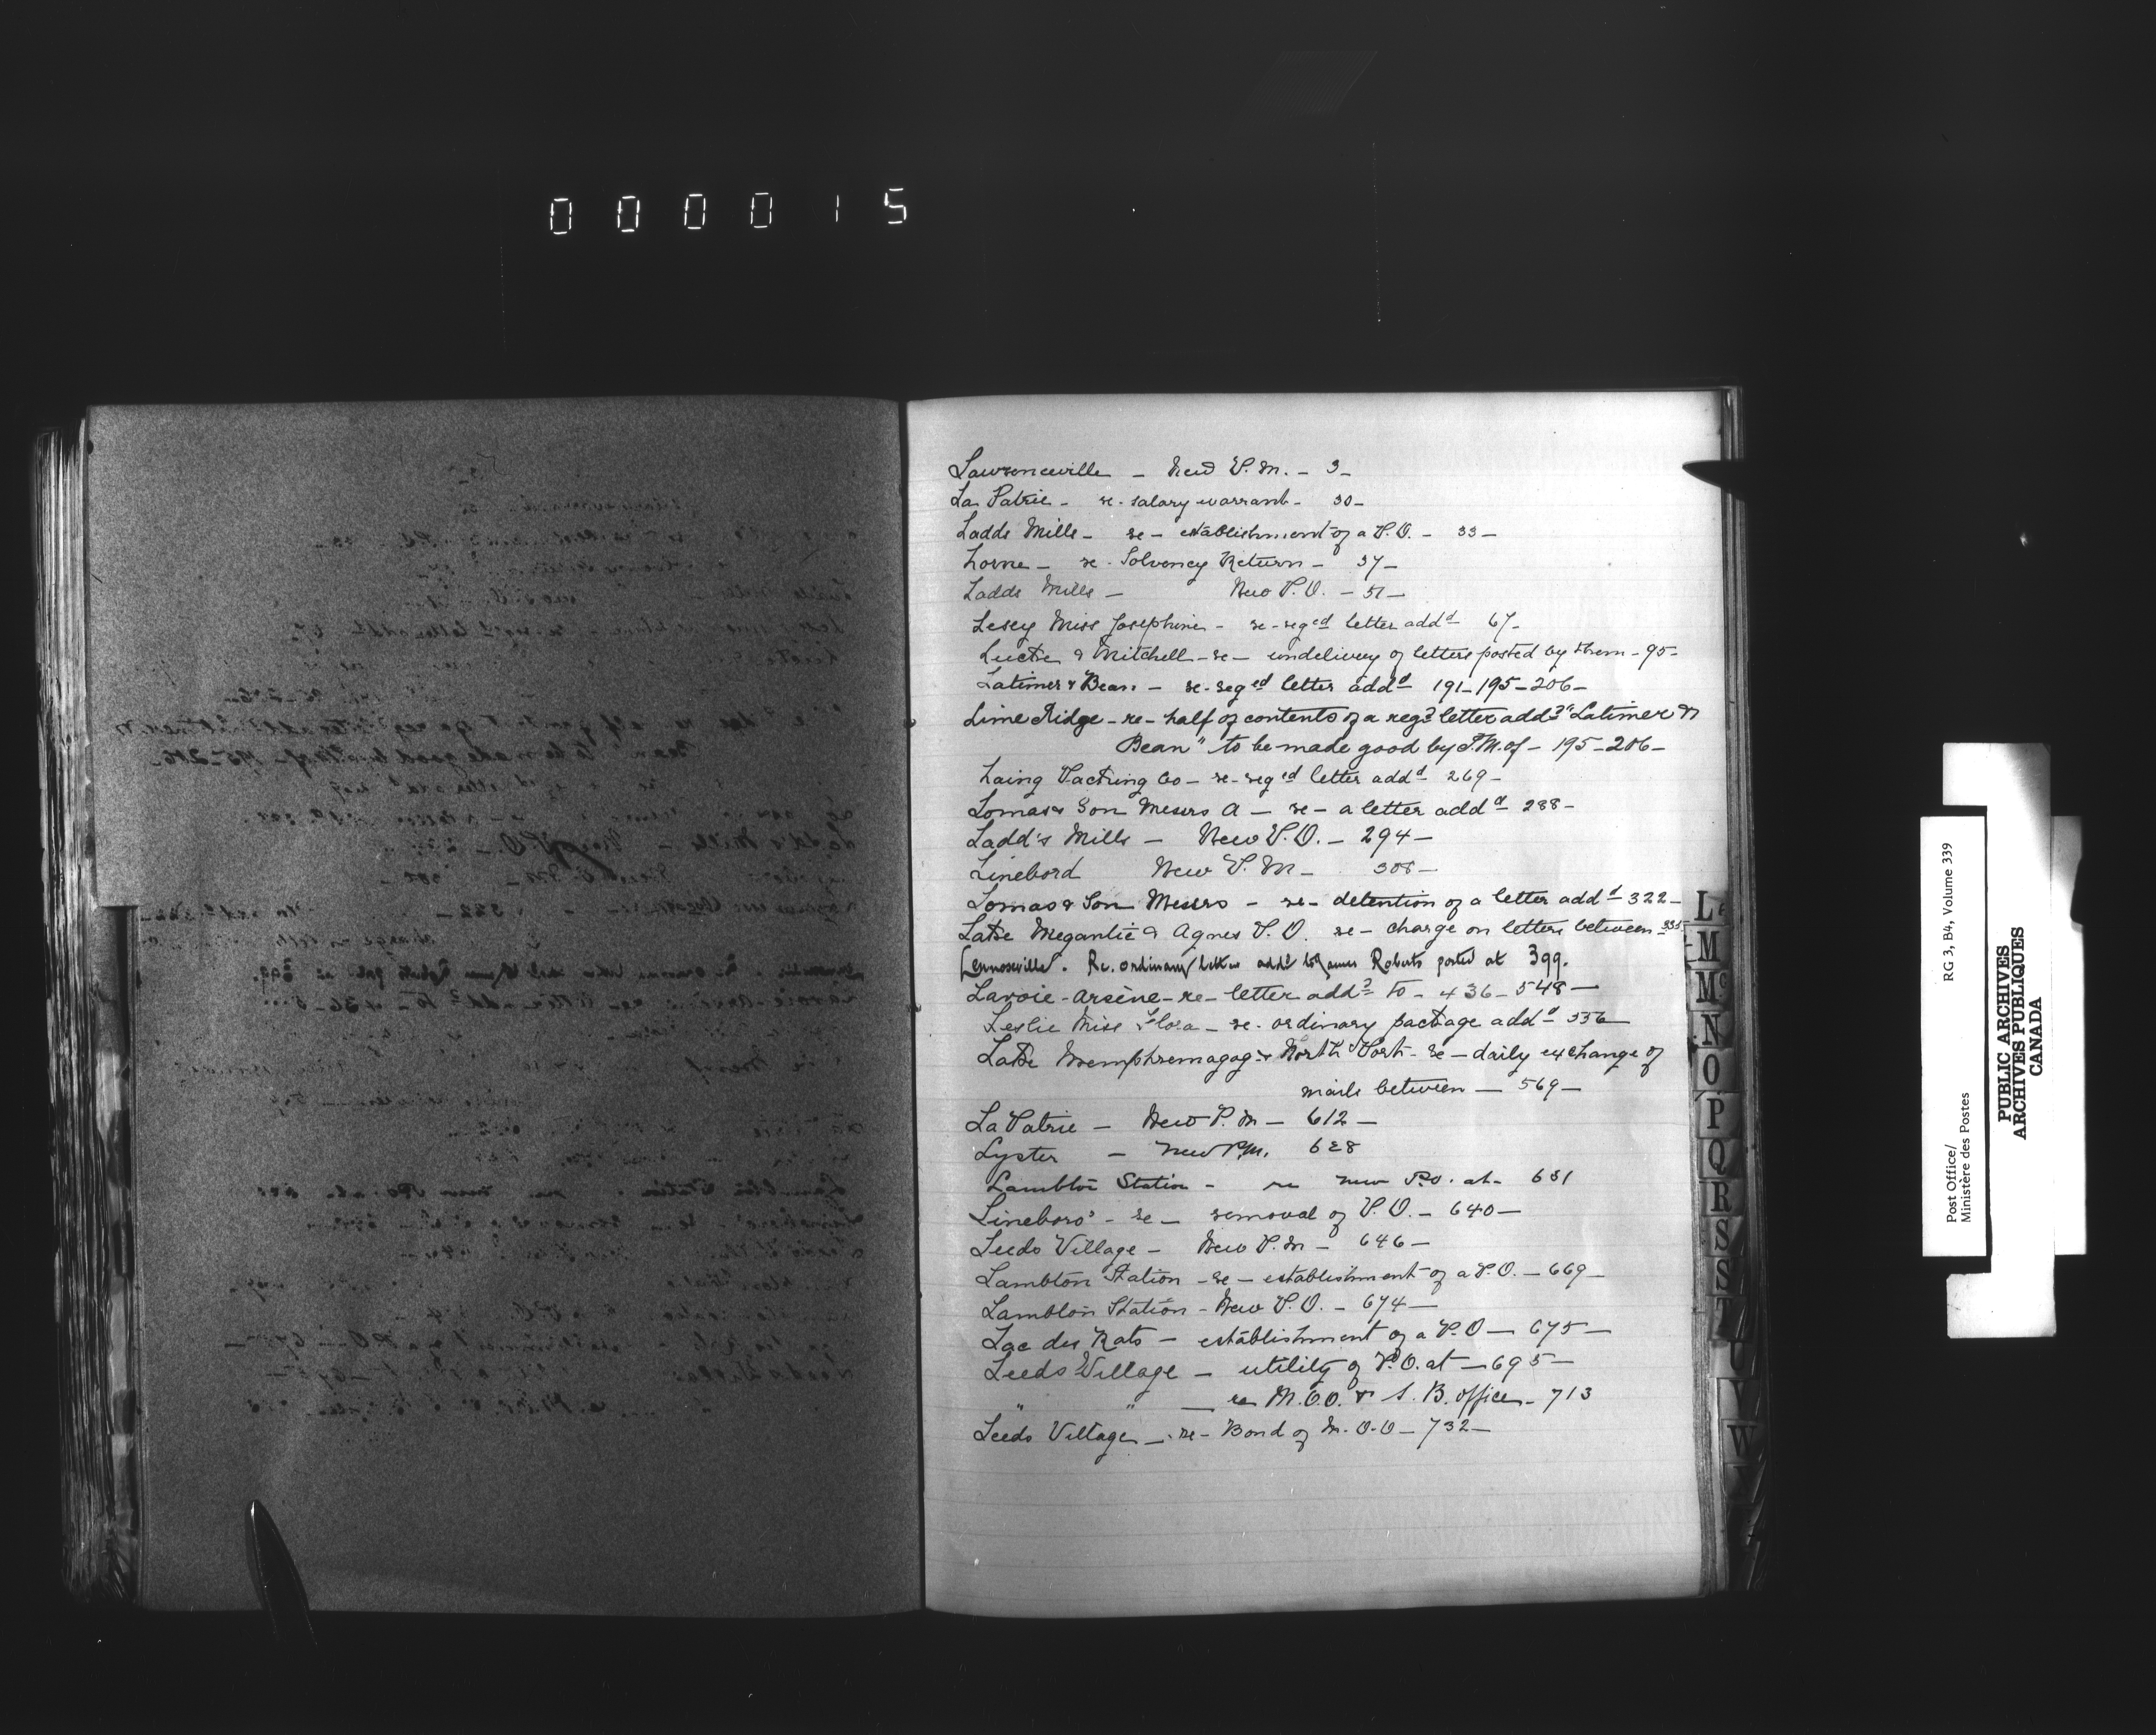 000015
Lawrenceville - New P.M. - 3-
La Patrie - re - salary warrant - 30-
Ladds Mills - re - establishment of a P.O. - 33-
Lorne - re - Solvency Return - 37-
Ladds Mills - New P.O. - 51-
Miss Josephine - re - reged letter addd 67-
& Mitchell - re - undelivery of letters posted by them - 95-
Latimer & Bean - re - reged letter addd 191-195-206-
Lime Ridge - re - half of contents of a regd letter addd "Latimer &
Bean" to be made good by P.M. of - 195-206-
Laing Packing Co - re - reged letter addd 269-
Lomas & Son Messrs A - re - a letter addd 288-
Ladd's Mills - New P.O. - 294-
Linebord New P.M - 308-
Lomas & Son Messrs - re - detention of a letter addd 322-
Lake Megantic & Agnes P.O. re - charge on letters between -
Lennoxville. Re. ordinary letter addd to James Roberts posted at 399.
Lavoie - Arsène - re - letter addd to - 436-548-
Leslie Miss Flora - re - ordinary package addd 556
Lake Memphremagog & North Port - re - daily exchange of
mails between - 569-
La Patrie - New P.M - 612-
Lyster - New P.M. 628
Lambton Station - re new P.O. at - 631
Lineboro' - re - removal of P.O. - 640-
Leeds Village - New P.M - 646-
Lambton Station - re - establishment of a P.O. - 669-
Lambton Station - New P.O. - 674-
Lac des Rats - establishment of a P.O - 675-
Leeds Village - utility of P.O. at - 695-
" " - re M.O.O. & S.B. office - 713
Leeds Village - re - Bond of M.O.O - 732-
L
M
Mc
N
O
P
Q
R
S
S
T
U
V
W
Post Office/
Ministère des Postes
RG 3, B4, Volume 339
PUBLIC ARCHIVES
ARCHIVES PUBLIQUES
CANADA